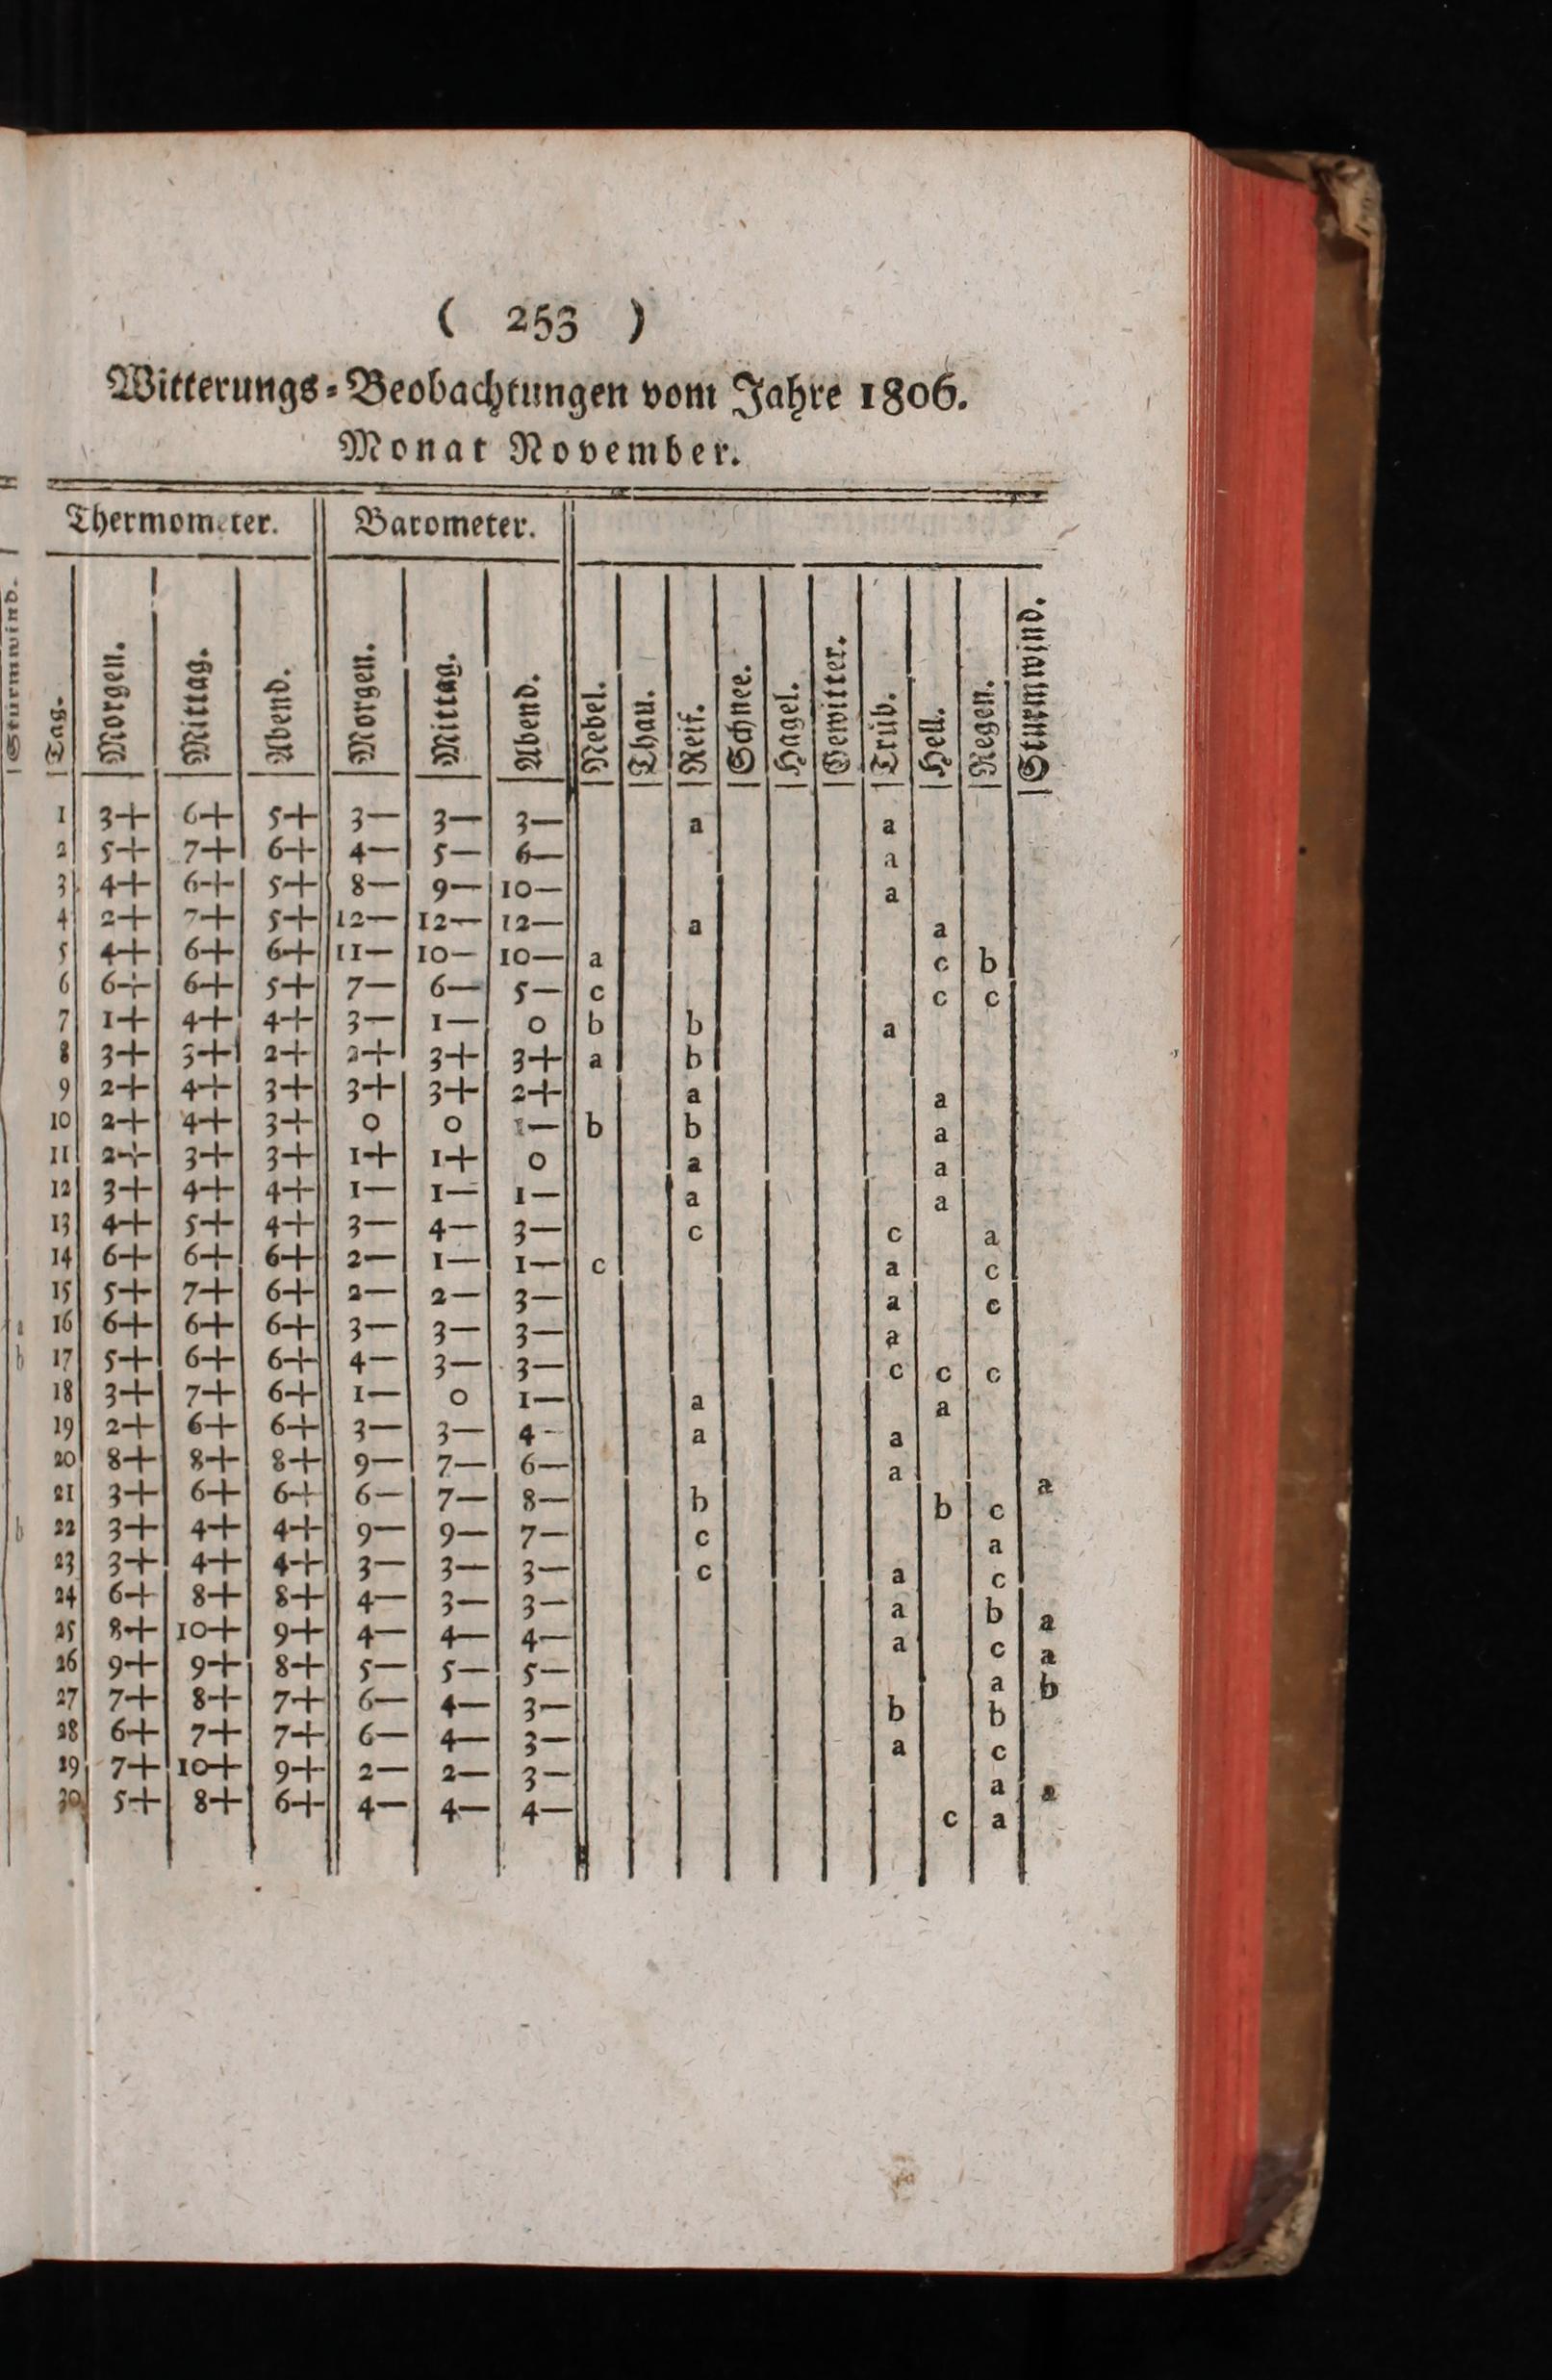 ( 253 )
Witterungs-Beobachtungen vom Jahre 1806.
Monat November.
Thermometer. Barometer.
Tag. Morgen. Mittag. Abend. Morgen. Mittag. Abend. Nebel. Thau. Reif. Schnee. Hagel. Gewitter. Trüb. Hell. Regen. Sturmwind.
1 3+ 6+ 5+ 3— 3— 3— a a
2 5+ 7+ 6+ 4— 5— 6— a
3 4+ 6+ 5+ 8— 9— 10— a
4 2+ 7+ 5+ 12— 12— 12— a a
5 4+ 6+ 6+ 11— 10— 10— a c b
6 6+ 6+ 5+ 7— 6— 5— c c c
7 1+ 4+ 4+ 3— 1— 0 b b a
8 3+ 3+ 2+ 2+ 3+ 3+ a b
9 2+ 4+ 3+ 3+ 3+ 2+ a a
10 2+ 4+ 3+ 0 0 1— b b a
11 2+ 3+ 3+ 1+ 1+ 0 a a
12 3+ 4+ 4+ 1— 1— 1— a a
13 4+ 5+ 4+ 3— 4— 3— c c a
14 6+ 6+ 6+ 2— 1— 1— c a c
15 5+ 7+ 6+ 2— 2— 3— a c
16 6+ 6+ 6+ 3— 3— 3— a
17 5+ 6+ 6+ 4— 3— 3— c c c
18 3+ 7+ 6+ 1— 0 1— a a
19 2+ 6+ 6+ 3— 3— 4— a a
20 8+ 8+ 8+ 9— 7— 6— a a
21 3+ 6+ 6+ 6— 7— 8— b b c
22 3+ 4+ 4+ 9— 9— 7— c a
23 3+ 4+ 4+ 3— 3— 3— c a c
24 6+ 8+ 8+ 4— 3— 3— a b a
25 8+ 10+ 9+ 4— 4— 4— a c a
26 9+ 9+ 8+ 5— 5— 5— a b
27 7+ 8+ 7+ 6— 4— 3— b b
28 6+ 7+ 7+ 6— 4— 3— a c
29 7+ 10+ 9+ 2— 2— 3— a a
30 5+ 8+ 6+ 4— 4— 4— c a